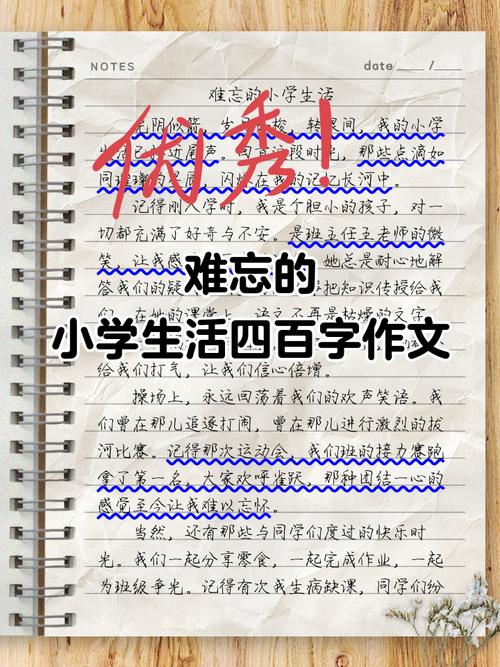 NOTES
date /
难忘的小学生活
优秀!
光阴似箭,岁月如梭,转眼间,我的小学
生活已接近尾声。回首这段时光,那些点滴如
同璀璨的星辰,闪烁在我的记忆长河中。
记得刚入学时,我是个胆小的孩子,对一
切都充满了好奇与不安。是班主任王老师的微
笑,让我感 她总是耐心地解
答我们的疑 把知识传授给我
们。在她的课堂上,语文不再是枯燥的文字,
难忘的
小学生活四百字作文
给我们打气,让我们信心倍增。
操场上,永远回荡着我们的欢声笑语。我
们曾在那儿追逐打闹,曾在那儿进行激烈的拔
河比赛。记得那次运动会,我们班的接力赛跑
拿了第一名,大家欢呼雀跃,那种团结一心的
感觉至今让我难以忘怀。
当然,还有那些与同学们度过的快乐时
光。我们一起分享零食,一起完成作业,一起
为班级争光。记得有次我生病缺课,同学们纷